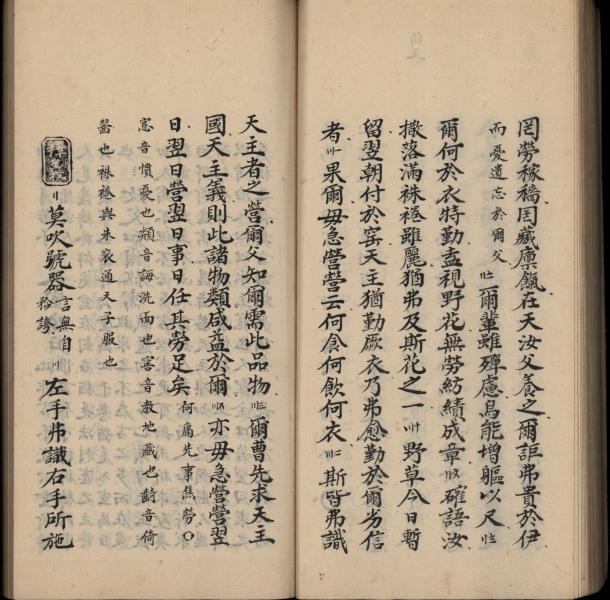 罔勞稼穡罔藏廩飢在天汝父養之爾詎弗貴於伊
而憂遺忘於爾父〢爾輩雖殫慮烏能增軀以尺
爾何於衣特勤盍視野花無勞紡績成章確語汝
撒落滿袾裷雖麗猶弗及斯花之一野草今日暫
留翌朝付於窑天主猶勤厥衣乃弗愈勤於爾劣信
者果爾毋急營營云何食何飲何衣斯皆弗識
天主者之營爾父知爾需此品物爾曹先求天主
國天主義則此諸物類咸益於爾亦毋急營營翌
日翌日營翌日事日任其勞足矣何庸先事焦勞○
窓音慣憂也頮音誨洗面也窖音教地藏也音倚
也袾裷與朱衮通天子服也
莫吹號器言無自矜誇左手弗識右手所施